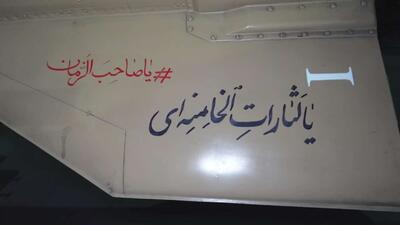 #یا صاحب الزمان
یا لَثاراتِ الخامنه‌ای